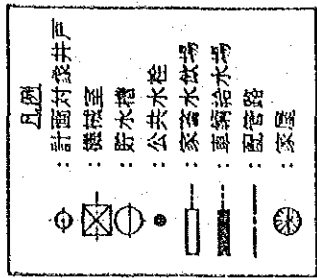 凡例
: 計画対象井戸
: 機械室
: 貯水槽
: 公共水栓
: 家畜水飲場
: 車輌給水場
: 配管路
: 家屋